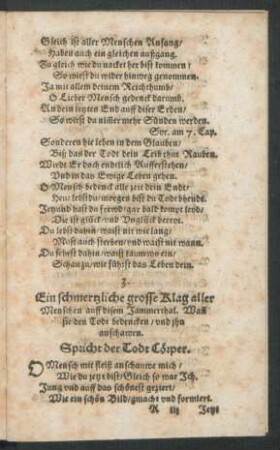 Gleich ist aller Menschen Anfang/
Haben auch ein gleichen außgang.
Zu gleich wie du nacket her bist kommen/
So wirst du wider hinweg genommen.
Ja mit allem deinem Reichthumb/
O Lieber Mensch gedenck darumb.
An dein letzten End auff diser Erden/
So wirst du nim̃er mehr Sünden werden.
Syr. am 7. Cap.
Sonderen hie leben in dem Glauben/
Biß das der Todt dein Leib thut Rauben.
Wirdt Er doch endtlich Aufferstehen/
Vnd in das Ewige Leben gehen.
O Mensch bedenck alle zeit dein Endt/
Heut lebst du/morgen bist du Todt behendt.
Jetzund hast du frewd/gar bald kompt leyd/
Wie ist glück vnd Vnglück bereit.
Du lebst dahin/waist nit wie lang/
Must auch sterben/vnd waist nit wann.
Du fehrst dahin/waist kaum wo ein/
Schaw zu/wie führst das Leben dein.
3.
Ein schmertzliche grosse Klag aller
Menschen auff disem Jammerthal. Wañ
sie den Todt bedencken/ vnd jhn
anschawen.
Spricht der Todt Cörper.
O Mensch mit fleiß anschawe mich/
Wie du jetzt bist/Gleich so war Jch.
Jung vnd auff das schönest geziert/
Wie ein schön Bild/gmacht vnd formiert.
A iij Jetzt